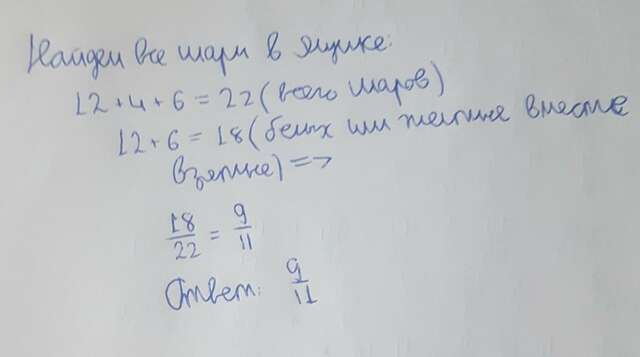 Найдем все шары в ящике:
12 + 4 + 6 = 22 (всего шаров)
12 + 6 = 18 (белых или желтые вместе
взятые) =>
18/22 = 9/11
Ответ: 9/11